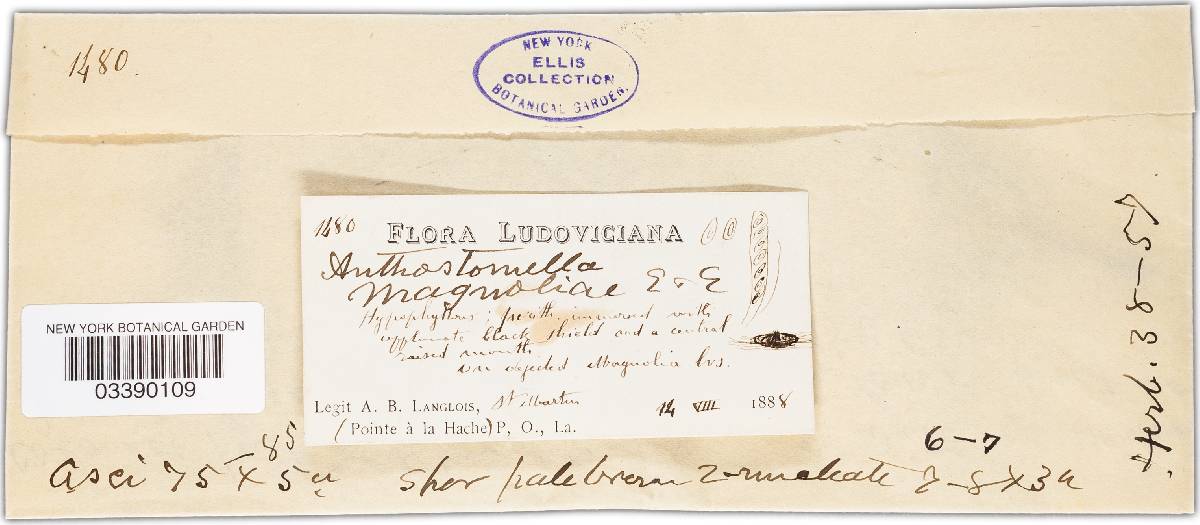 1480.
NEW YORK
ELLIS
COLLECTION
BOTANICAL GARDEN.
1480
FLORA LUDOVICIANA
Anthostomella
magnoliae E & E
Hypophyllous; perith. immersed with
applanate black shield and a central
raised mouth
on dejected Magnolia lvs.
Legit A. B. LANGLOIS, St Martin 14 VIII 1888
(Pointe à la Hache) P, O., La.
NEW YORK BOTANICAL GARDEN
03390109
85
6-7
asci 75 × 5 u spor pale brown 2-nucleate 7-8 × 3 u
Herb. 38-59